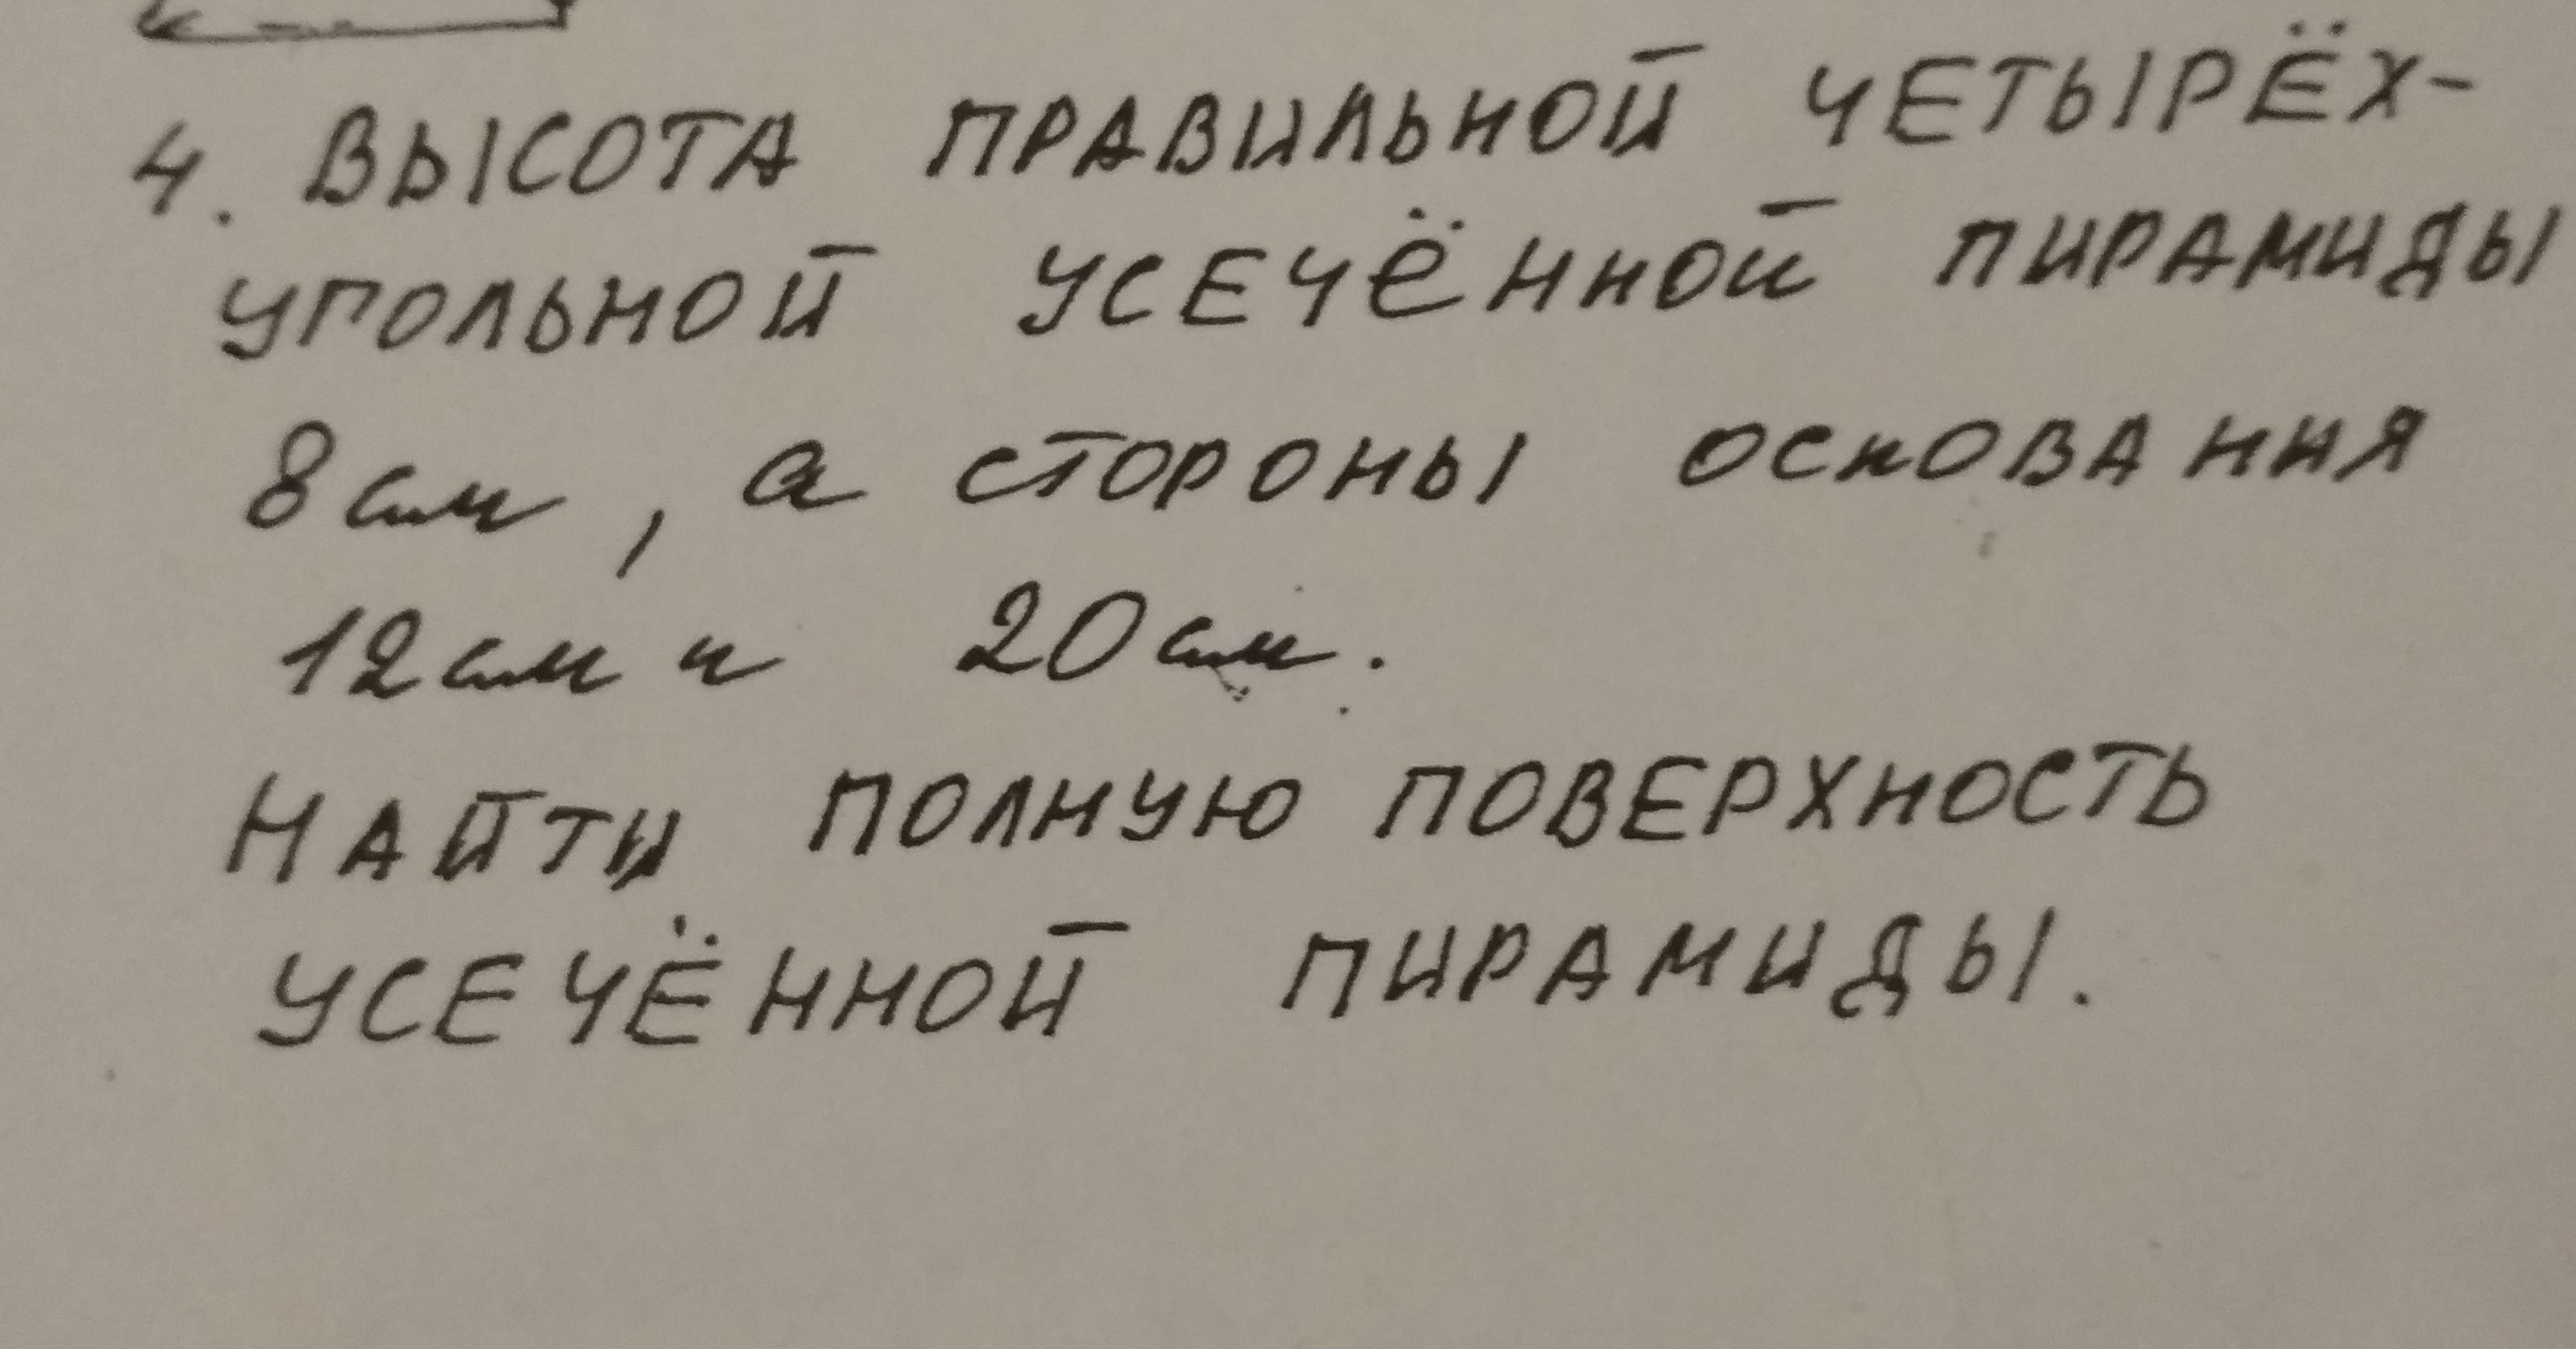 4. ВЫСОТА ПРАВИЛЬНОЙ ЧЕТЫРЁХ-
УГОЛЬНОЙ УСЕЧЁННОЙ ПИРАМИДЫ
8 см, а СТОРОНЫ ОСНОВАНИЯ
12 см и 20 см.
НАЙТИ ПОЛНУЮ ПОВЕРХНОСТЬ
УСЕЧЁННОЙ ПИРАМИДЫ.